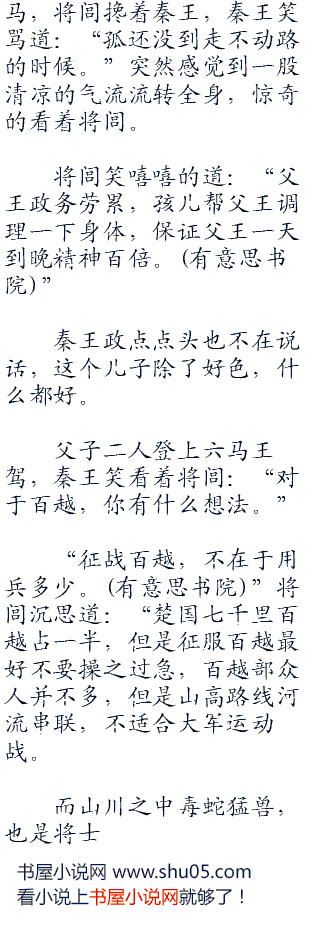 马，将闾搀着秦王，秦王笑
骂道：“孤还没到走不动路
的时候。”突然感觉到一股
清凉的气流流转全身，惊奇
的看着将闾。
将闾笑嘻嘻的道：“父
王政务劳累，孩儿帮父王调
理一下身体，保证父王一天
到晚精神百倍。(有意思书
院)”
秦王政点点头也不在说
话，这个儿子除了好色，什
么都好。
父子二人登上六马王
驾，秦王笑看着将闾：“对
于百越，你有什么想法。”
“征战百越，不在于用
兵多少。(有意思书院)”将
闾沉思道：“楚国七千里百
越占一半，但是征服百越最
好不要操之过急，百越部众
人并不多，但是山高路线河
流串联，不适合大军运动
战。
而山川之中毒蛇猛兽，
也是将士
书屋小说网 www.shu05.com
看小说上书屋小说网就够了！